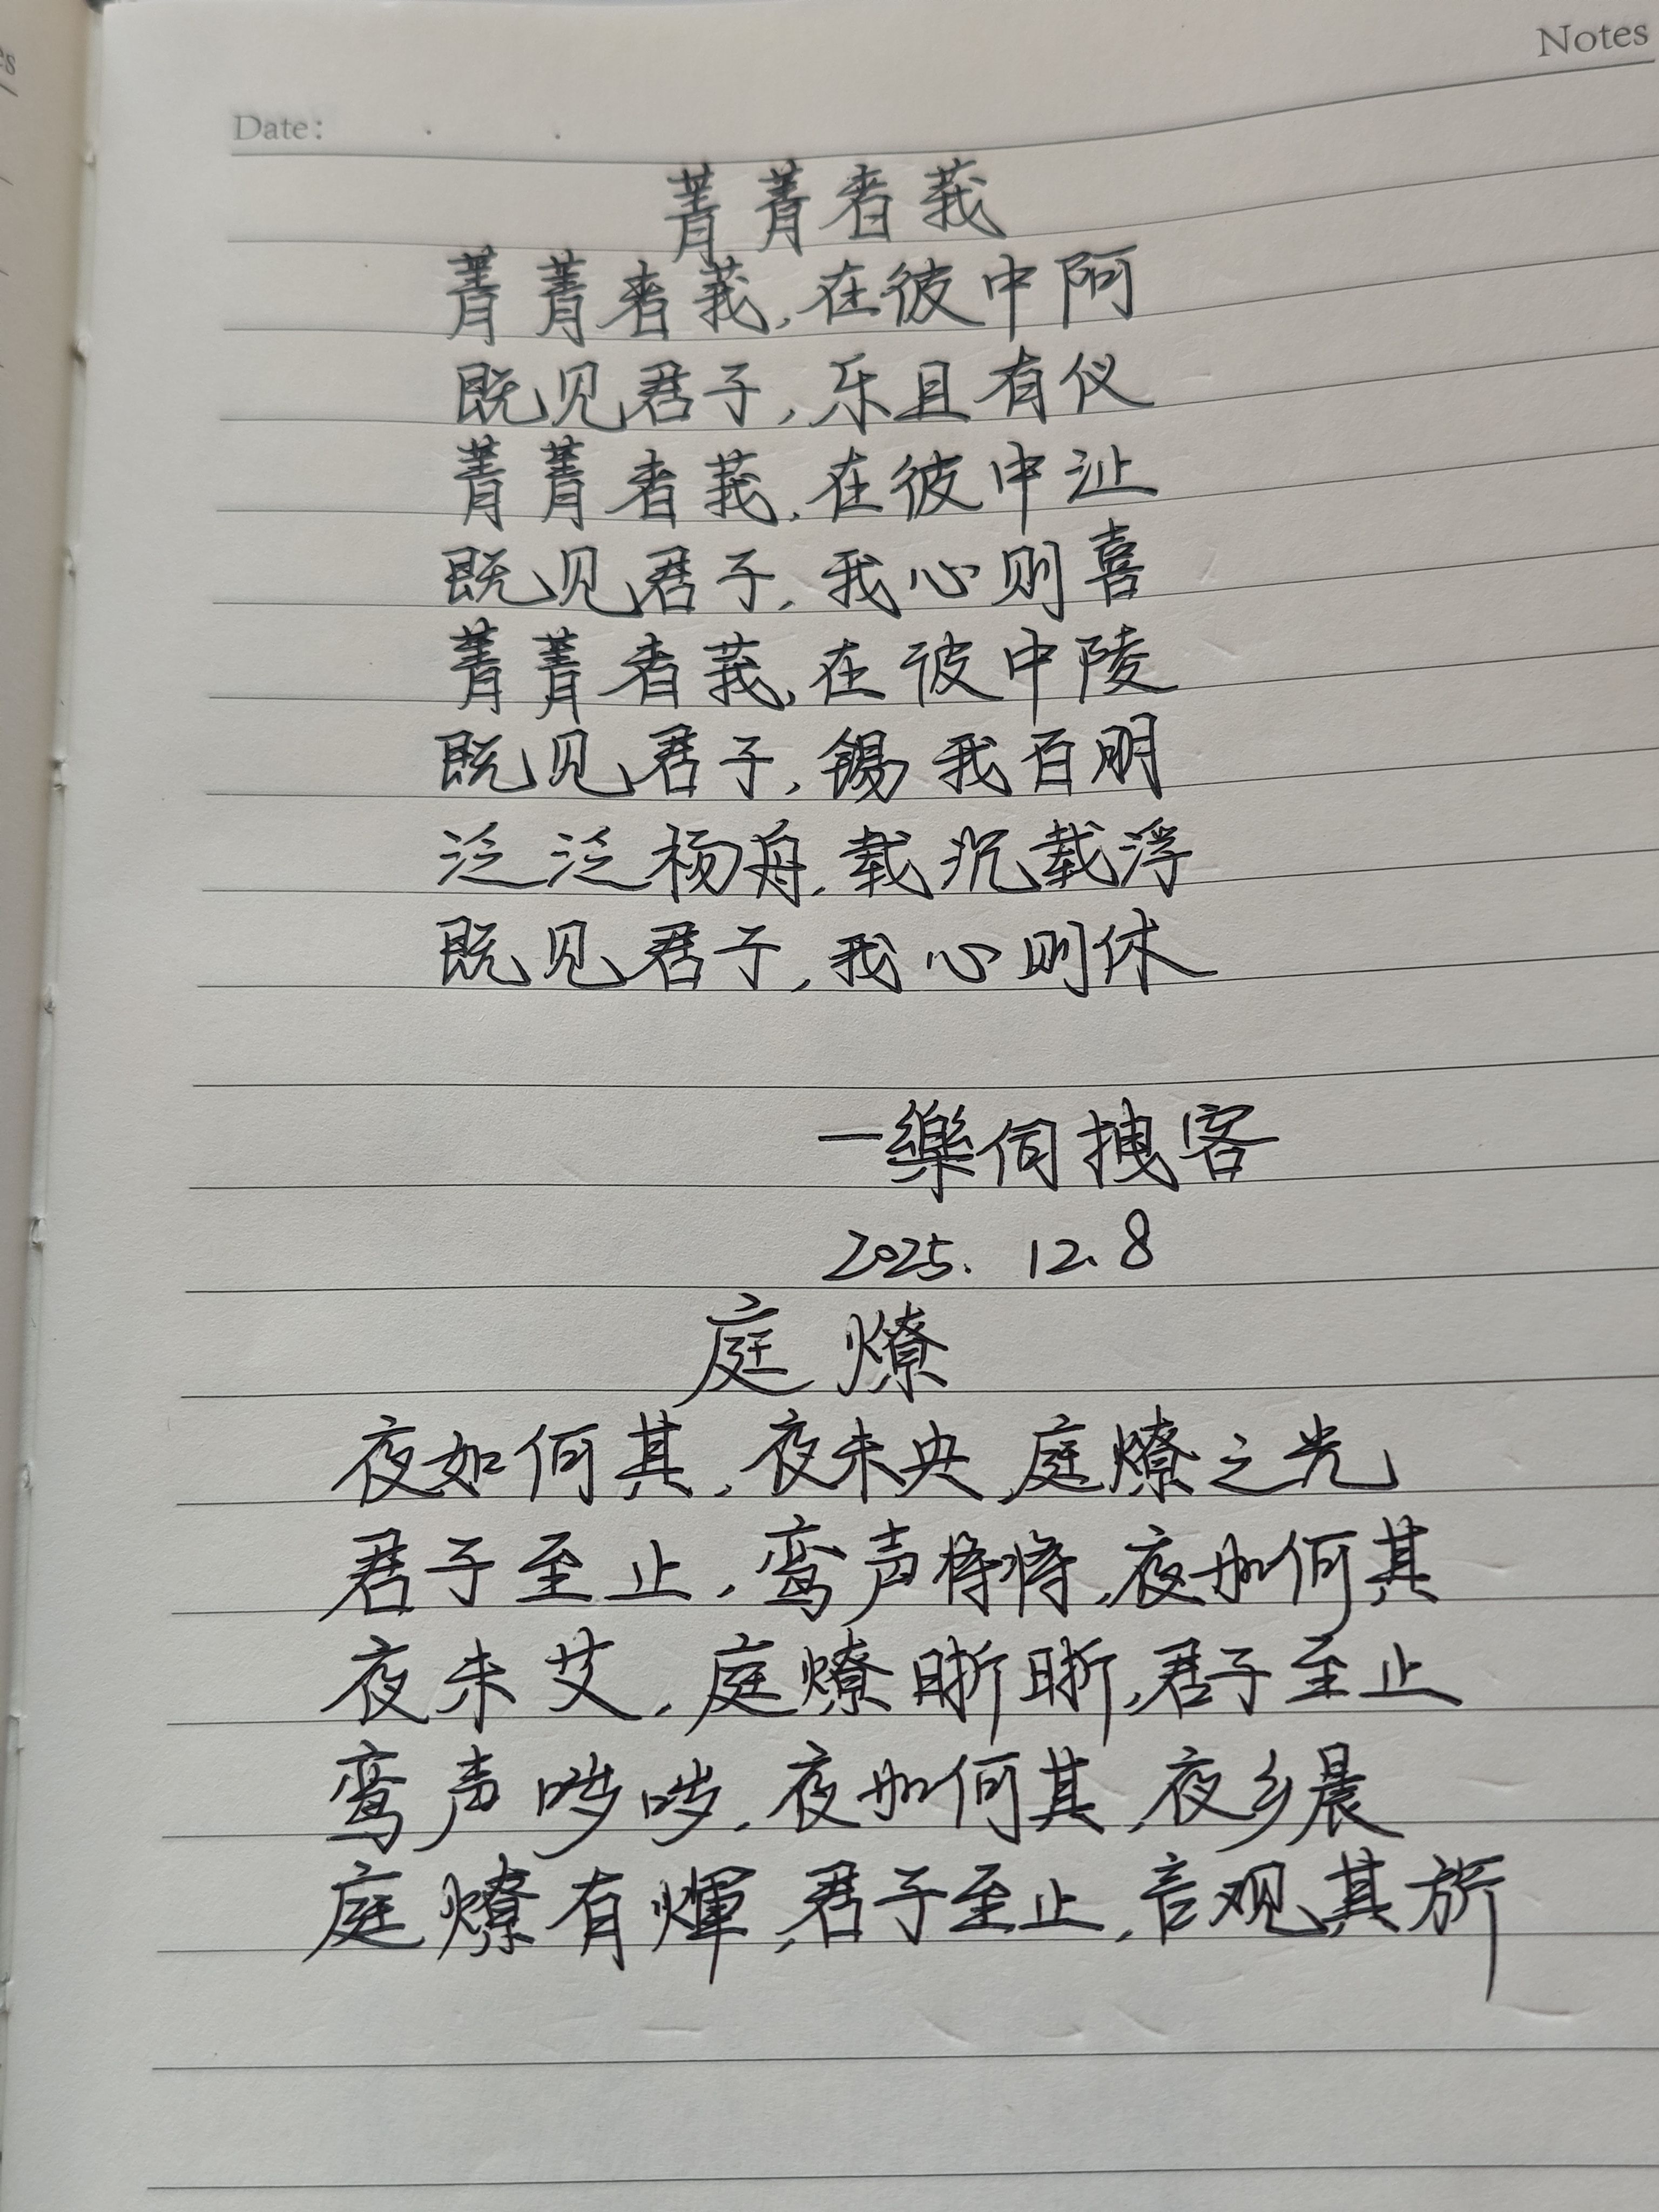 Notes
Date:
菁菁者莪
菁菁者莪,在彼中阿
既见君子,乐且有仪
菁菁者莪,在彼中沚
既见君子,我心则喜
菁菁者莪,在彼中陵
既见君子,锡我百朋
泛泛杨舟,载沉载浮
既见君子,我心则休
一樂伺拽客
2025.12.8
庭燎
夜如何其,夜未央,庭燎之光
君子至止,鸾声将将,夜如何其
夜未艾,庭燎晣晣,君子至止
鸾声哕哕,夜如何其,夜乡晨
庭燎有煇,君子至止,言观其旂